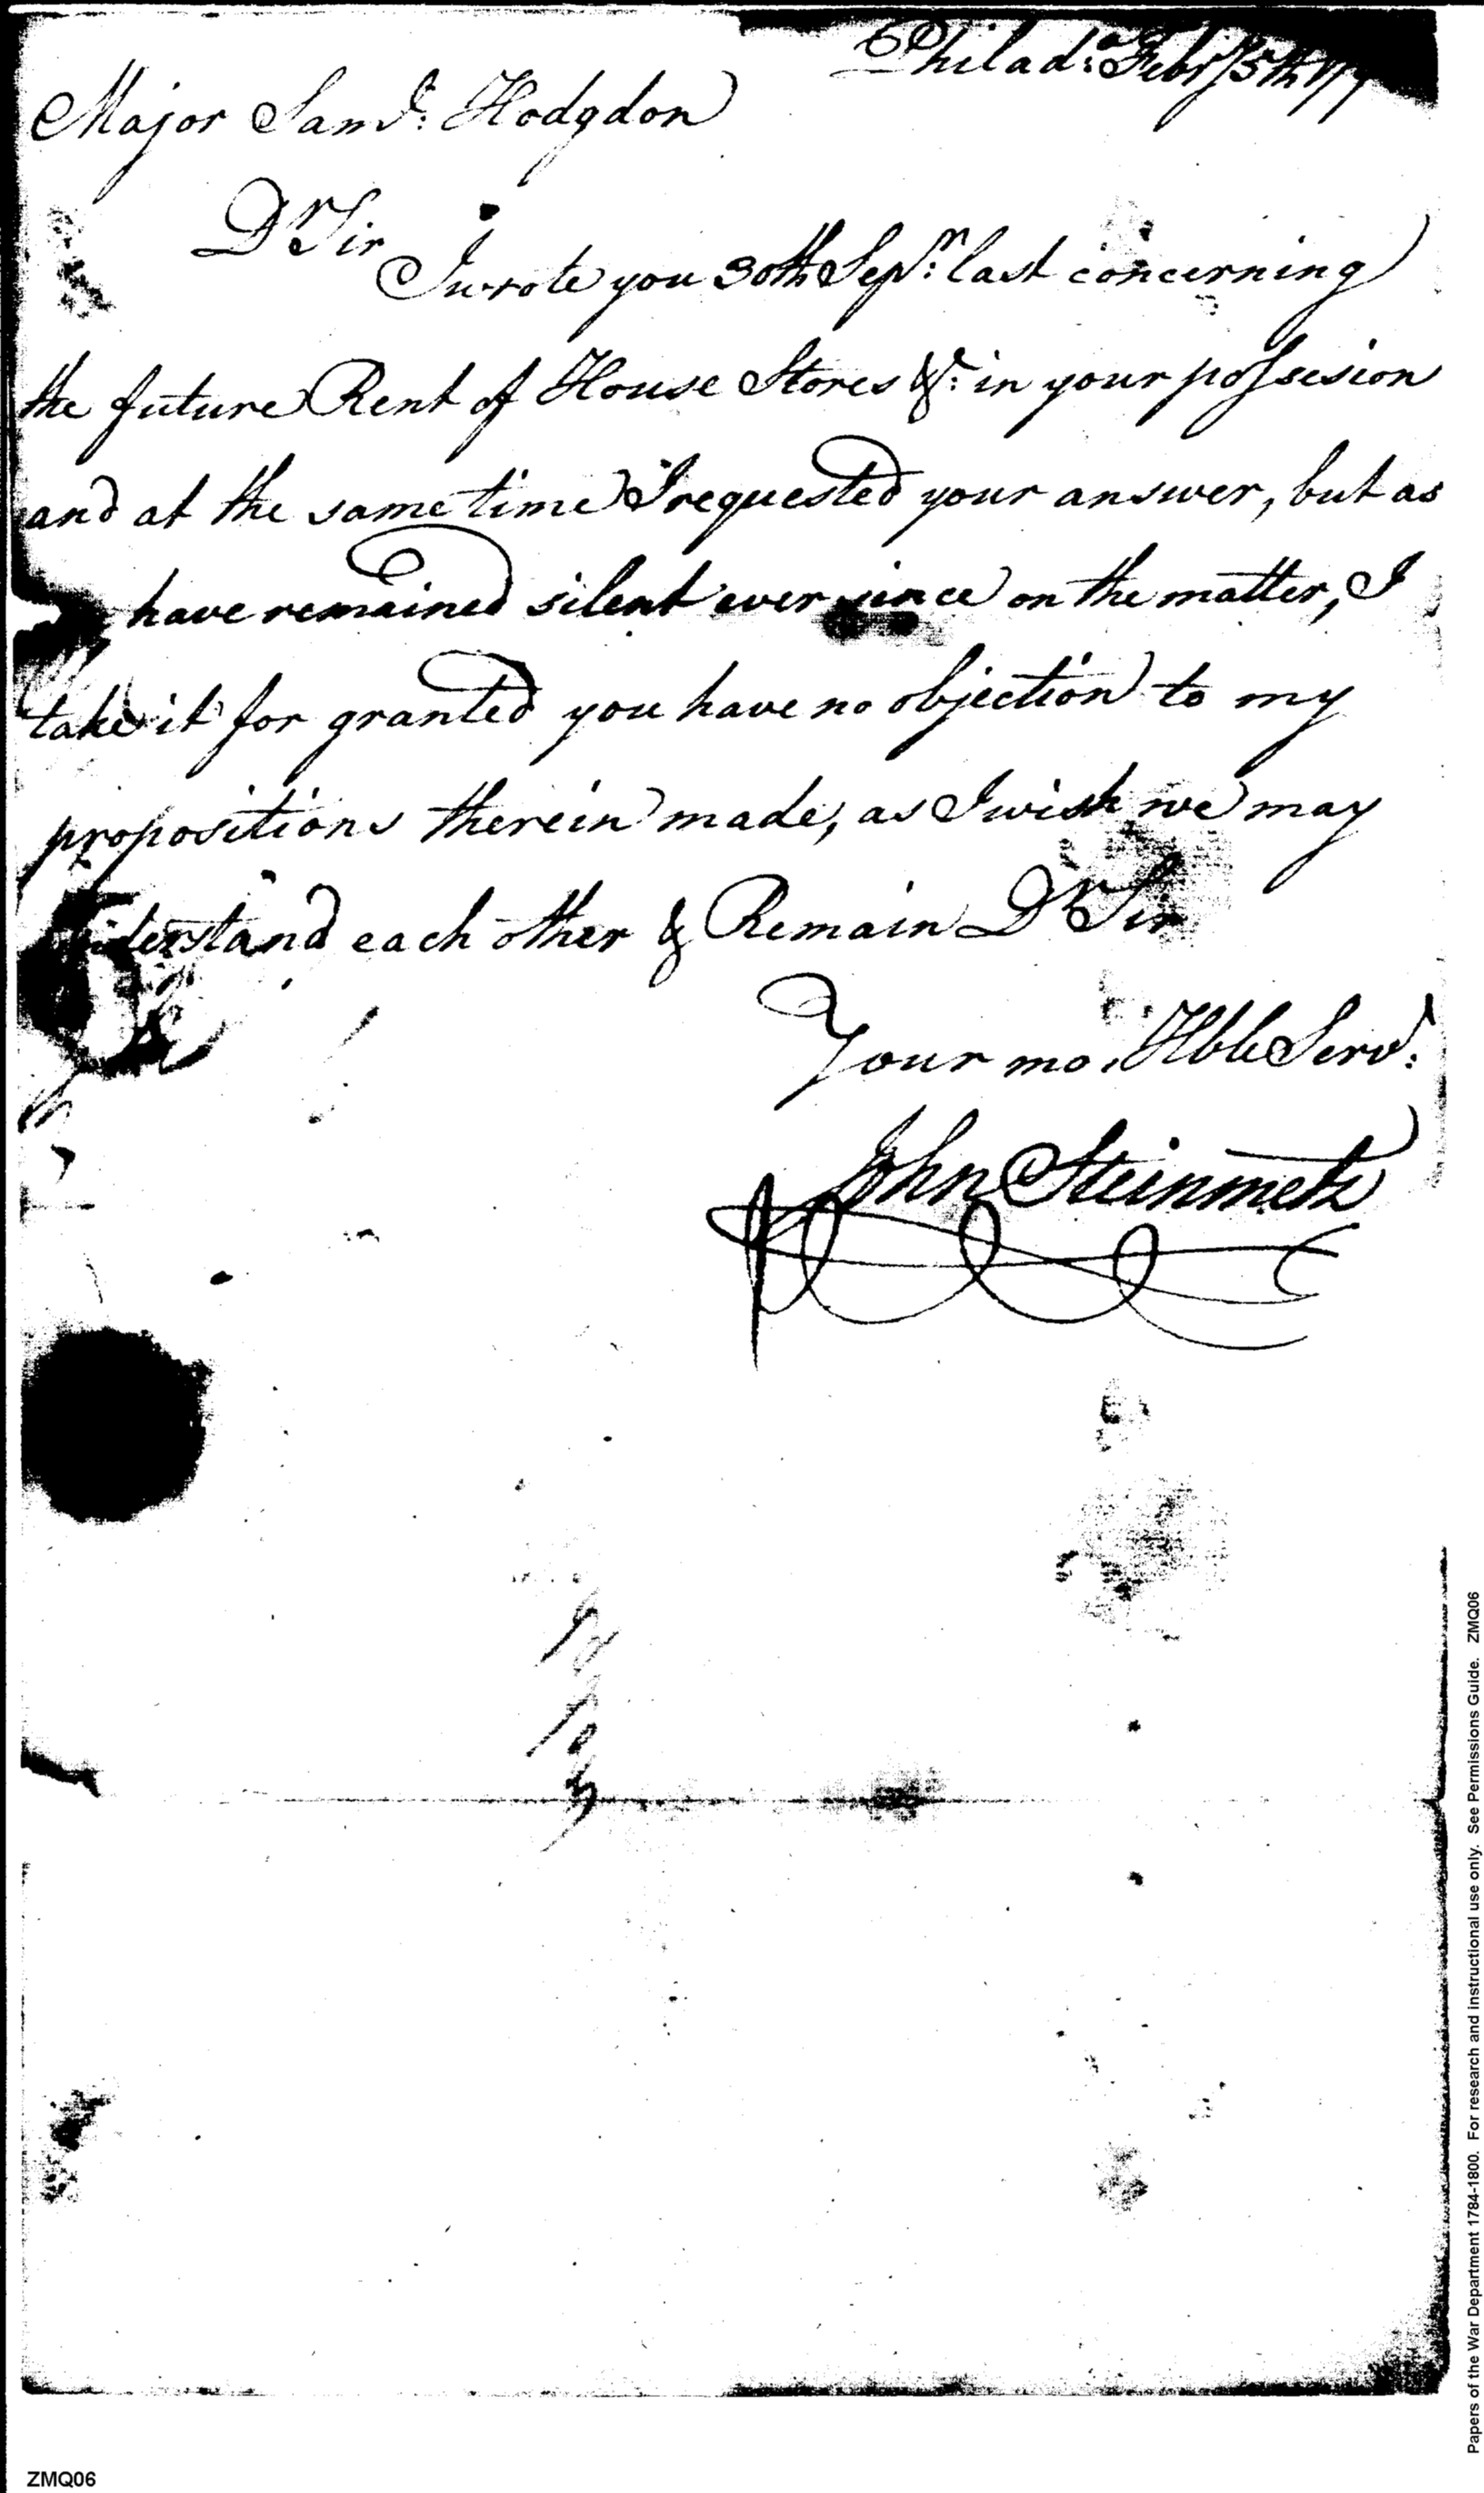 Philad:ᵃ Feby 5th 17
Major Samˡ: Hodgdon
Dʳ Sir
I wrote you 30th Sepʳ: last concerning
the future Rent of House Stores &ᶜ: in your possesion
and at the same time I requested your answer, but as
have remained silent ever since on the matter, I
take it for granted you have no objection to my
propositions therein made, as I wish we may
understand each other & Remain Dʳ Sir
Your mo. Hble Servᵗ:
John Steinmetz
Papers of the War Department 1784-1800. For research and instructional use only. See Permissions Guide. ZMQ06
ZMQ06